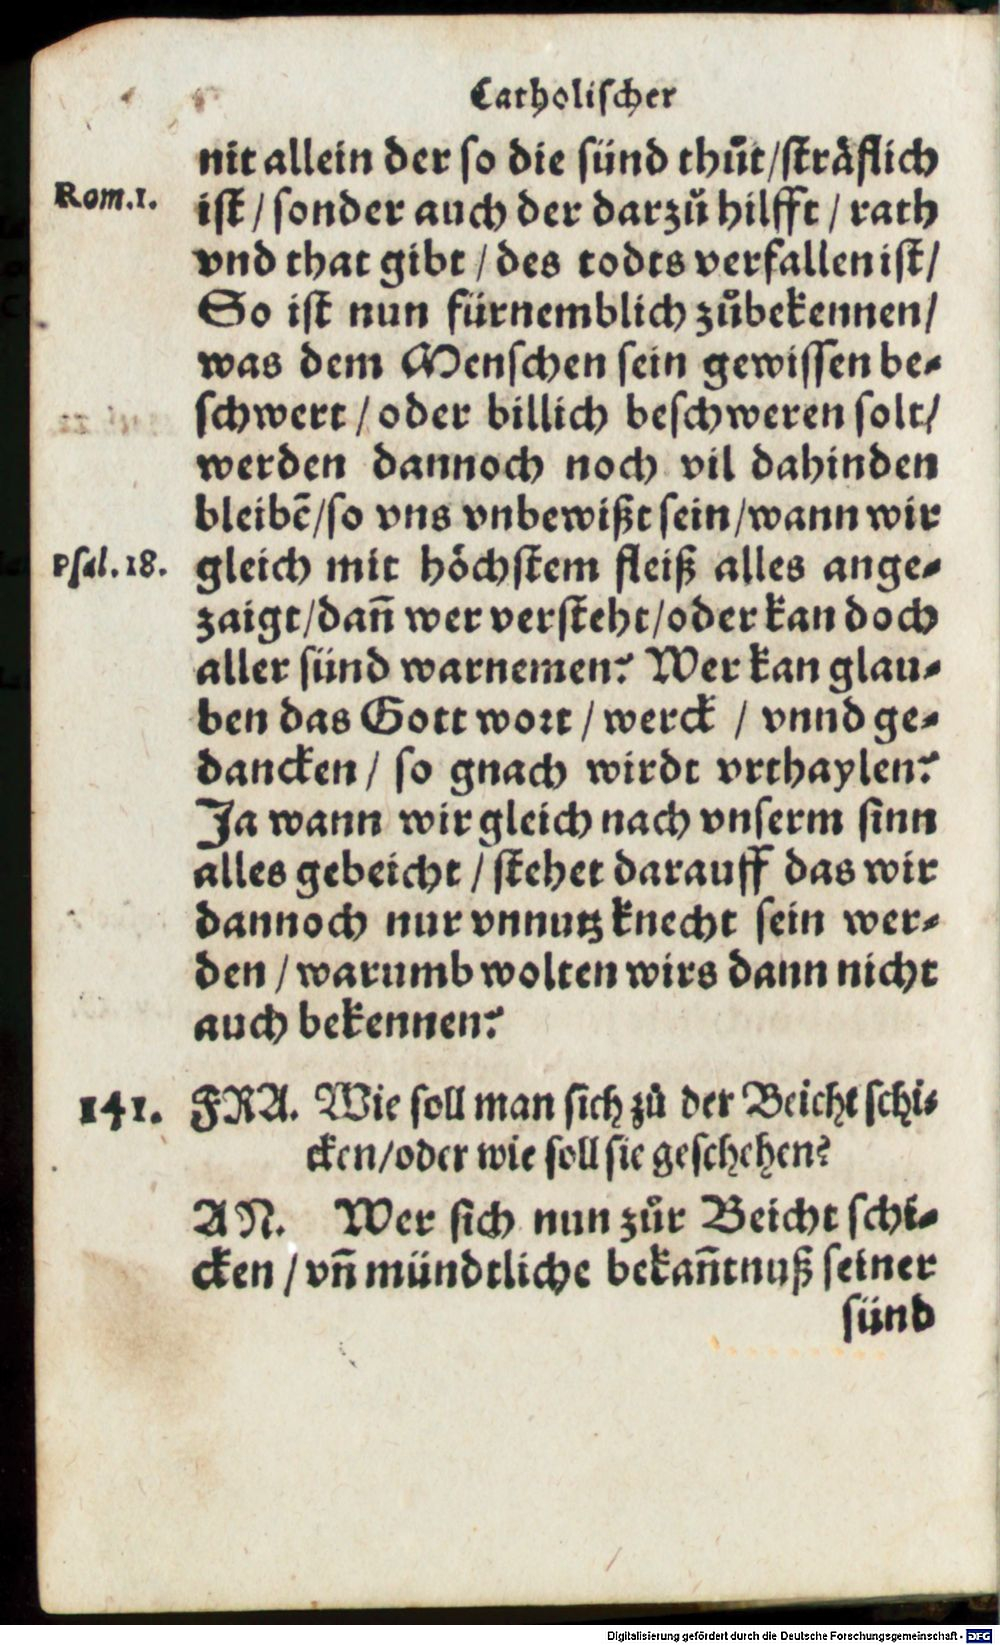 Catholischer
nit allein der so die sünd thůt/sträflich
Rom.1.
ist / sonder auch der darzů hilfft / rath
vnd that gibt / des todts verfallen ist/
So ist nun fürnemblich zůbekennen/
was dem Menschen sein gewissen be-
schwert / oder billich beschweren solt/
werden dannoch noch vil dahinden
bleibẽ/so vns vnbewißt sein/wann wir
Psal.18.
gleich mit höchstem fleiß alles ange-
zaigt/dañ wer versteht/oder kan doch
aller sünd warnemen? Wer kan glau-
ben das Gott wort / werck / vnnd ge-
dancken / so gnach wirdt vrthaylen?
Ja wann wir gleich nach vnserm sinn
alles gebeicht / stehet darauff das wir
dannoch nur vnnutz knecht sein wer-
den / warumb wolten wirs dann nicht
auch bekennen?
141. FRA. Wie soll man sich zů der Beicht schi-
cken/oder wie soll sie geschehen?
AN. Wer sich nun zůr Beicht schi-
cken / vñ mündtliche bekañtnuß seiner
sünd
Digitalisierung gefördert durch die Deutsche Forschungsgemeinschaft - DFG